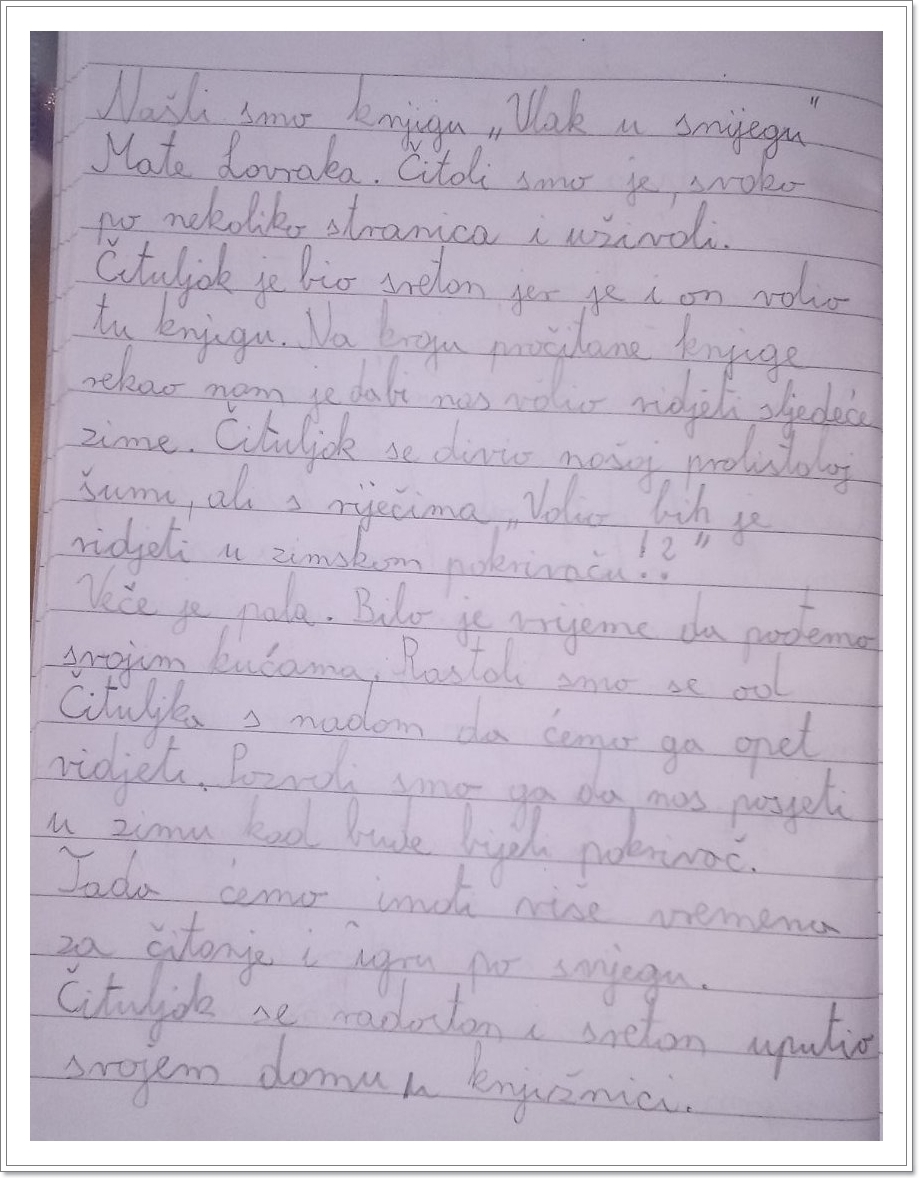 Našli smo knjigu „Vlak u snijegu”
Mate Lovraka. Čitali smo je, svako
po nekoliko stranica i uživali.
Čituljak je bio sretan jer je i on volio
tu knjigu. Na kraju pročitane knjige
rekao nam je da bi nas volio vidjeti sljedeće
zime. Čituljak se divio našoj prolistaloj
šumi, ali s riječima „Volio bih je
vidjeti u zimskom pokrivaču!?”
Veče je pala. Bilo je vrijeme da pođemo
svojim kućama. Rastali smo se od
Čituljka s nadom da ćemo ga opet
vidjeti. Pozvali smo ga da nas posjeti
u zimu kad bude bijeli pokrivač.
Tada ćemo imati više vremena
za čitanje i igru po snijegu.
Čituljak se radostan i sretan uputio
svojem domu u knjižnici.